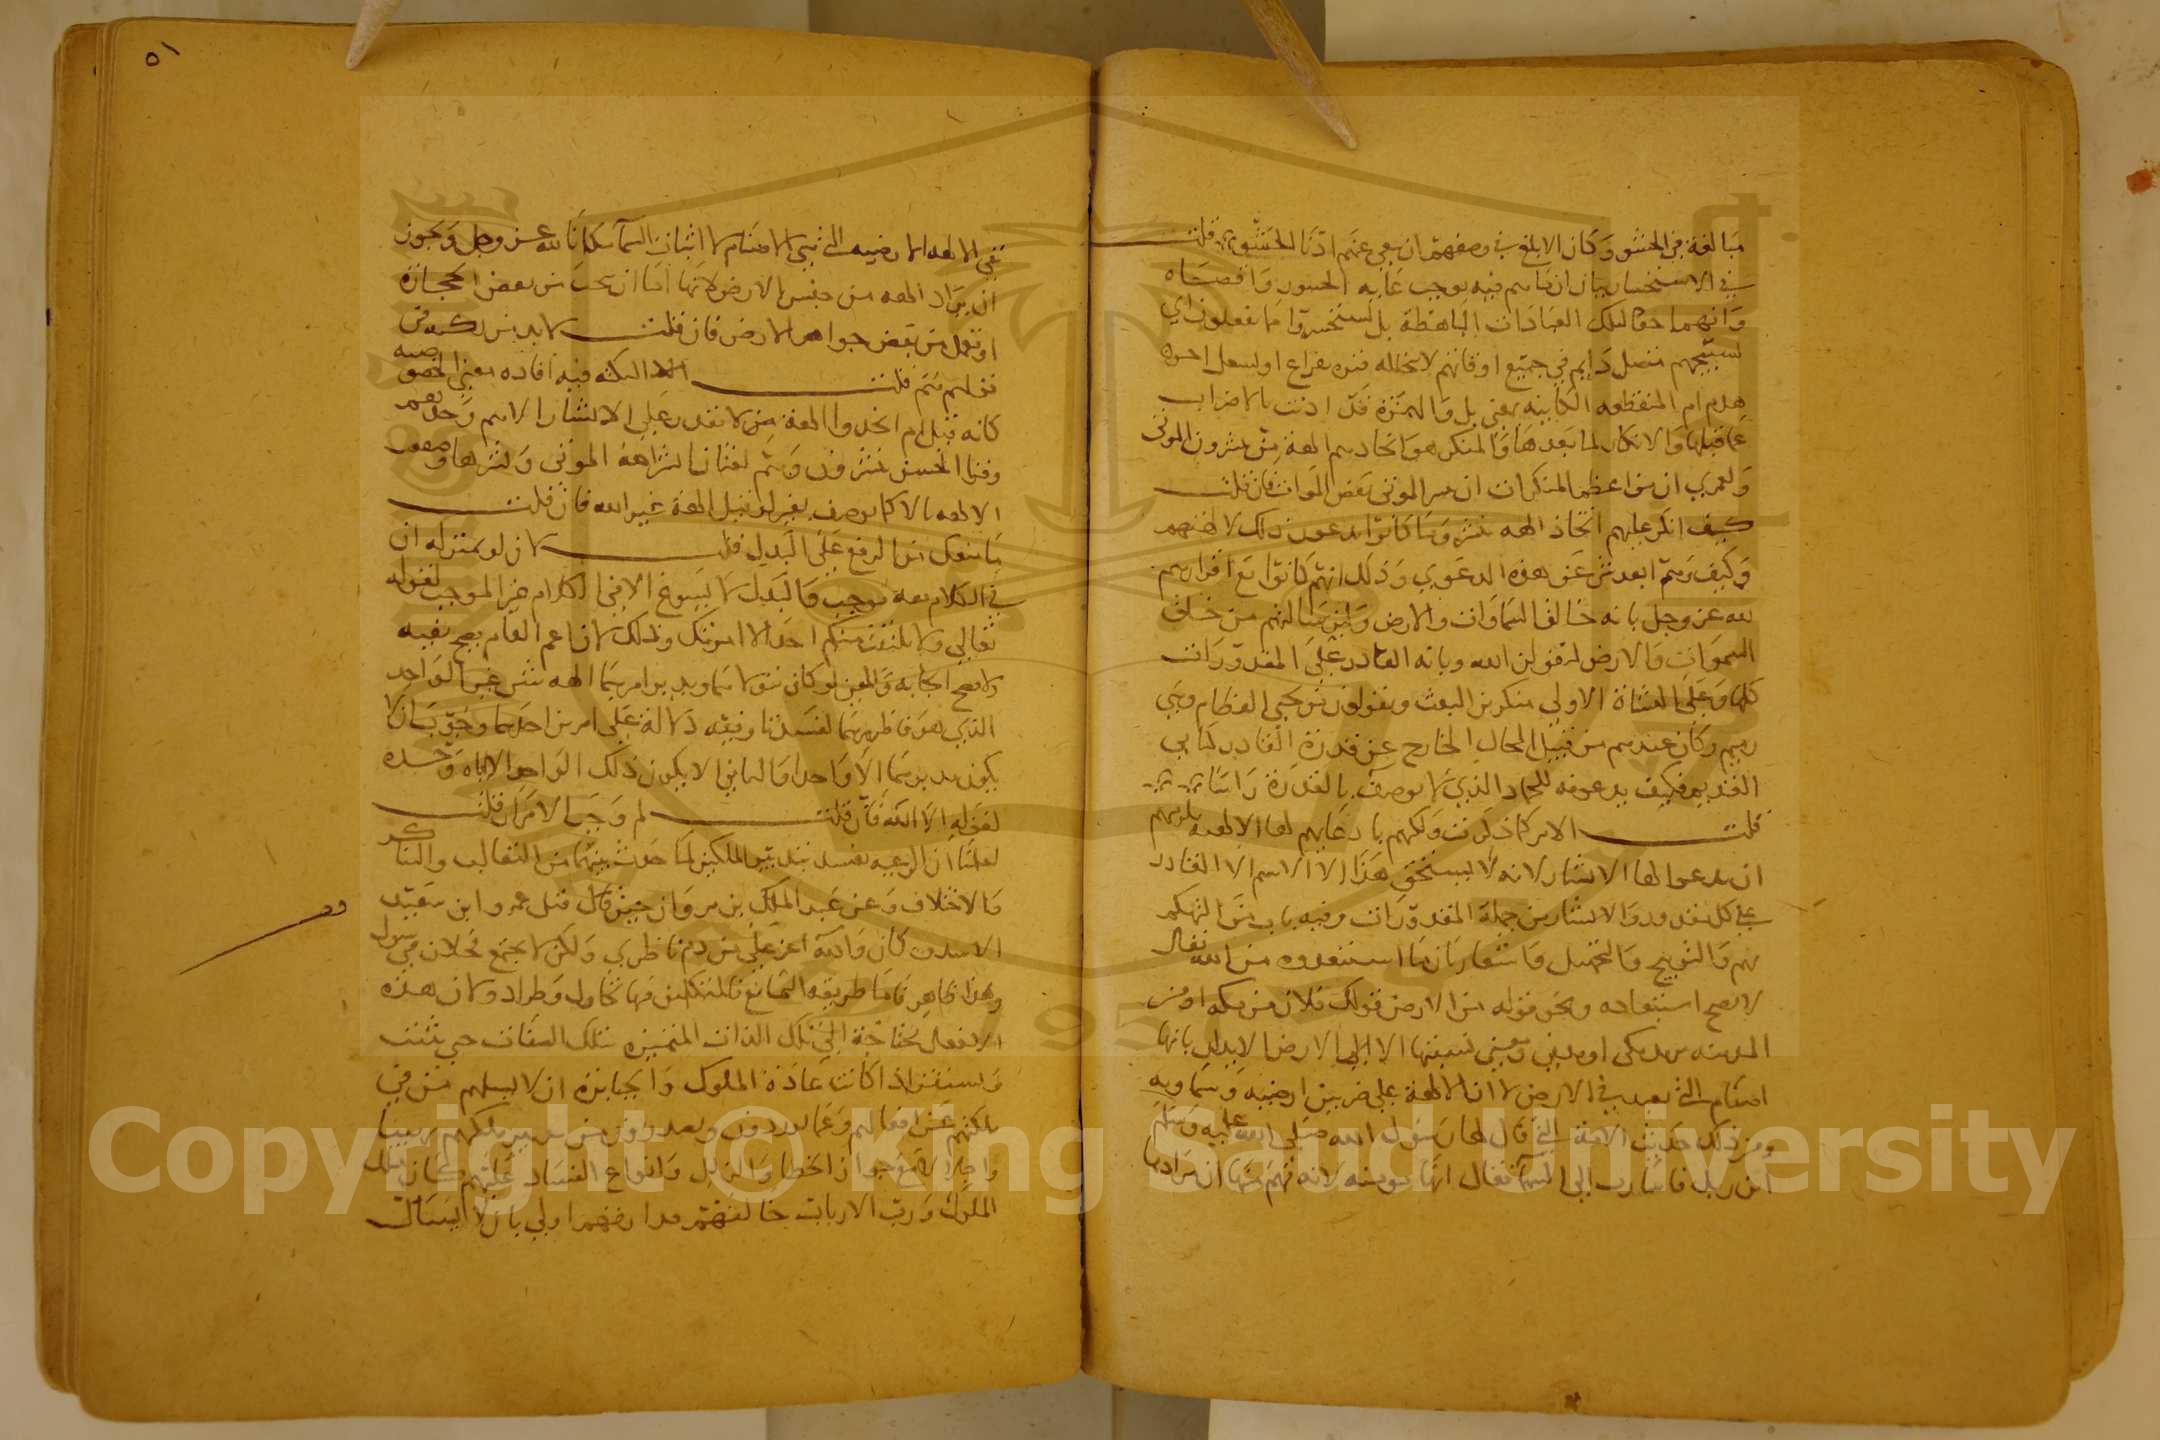 مبالغة في الحشو وكان الابلغ في وصفهم ان ينفي عنهم ادنا الحسور قلت
في الاستحسار بيان ان ما هم فيه يوجب غاية الحسور واقصاه
وانهم احقا لتلك العبادات الباهظة بل يستحسروا فيما يفعلون اي
تسبيحهم متصل دايم في جميع اوقاتهم لا يتخلله فترة بفراغ او بشغل اخر
هذه ام المنقطعه الكاينه بمعنى بل والهمزة قد اذنت بالاضراب
عما قبلها والانكار لما بعدها والمنكر هو اتخادهم الهة من ينشرون الموتى
ولعمري ان من اعظم المنكرات ان ينشر الموتى بعض الموات فان قلت
كيف انكر عليهم اتخاذ الهه تنشر وما كانوا يدعون ذلك لالهتهم
وكيف وهم ابعد شي عن هذه الدعوي وذلك انهم كانوا مع اقرارهم
لله عز وجل بانه خالق السماوات والارض ولئن سالتهم من خلق
السموات والارض ليقولن الله وبانه القادر على المقدورات
كلها وعلى النشاة الاولي منكرين البعث ويقولون من يحيي العظام وهي
رميم وكان عندهم من قبيل المحال الخارج عن قدرة القادر كثاني
القديم فكيف يدعونه للجماد الذي لا يوصف بالقدرة راسا
قلت الامر كما ذكرت ولكنهم بادعايهم لها الالهية يلزمهم
ان يدعوا لها الانشار لانه لا يستحق هذا الاسم الا القادر
على كل مقدور والانشار من جملة المقدورات وفيه باب من التهكم
بهم والتوبيخ والتجهيل واشعار بان ما استبعدوه من الله تعالى
لا يصح استبعاده ونحو قوله من الارض قولك فلان من مكه او من
المدينه تريد مكي او مديني ومعنى نسبتها الى الارض الايذان بانها
اصنام التي تعبد في الارض لان الالهة على ضربين ارضيه وسماويه
ومن ذلك حديث الامة التي قال لها رسول الله صلى الله عليه وسلم
اين ربك فاشارت الى السماء فقال انها مومنه لانه فهم منها ان مرادها
٥١
نفي الالهه الارضيه التي هي الاصنام لا اثبات السماء مكانا لله عز وجل ويجوز
ان يراد الهه من جنس الارض لانها اما ان تنحت من بعض الحجارة
او تعمل من بعض جواهر الارض فان قلت لا بد من نكته في
قولهم هم قلت النكته فيه افاده معنى الخصوصيه
كانه قيل ام اتخذوا الهة من لا يقدر على الانشار الا هم وحدهم
وقرا الحسن ينشرون وهما لغتان انشر الله الموتى ونشرها وصفت
الالهه بالا كما يوصف بغير لو قيل الهة غير الله فان قلت
ما منعك من الرفع على البدل قلت لان لو بمنزله ان
في ان الكلام معه موجب والبدل لا يسوغ الا في الكلام غير الموجب لقوله
تعالى ولا يلتفت منكم احد الا امراتك وذلك لان اعم العام يصح نفيه
ولا يصح ايجابه والمعنى لو كان يتولاهما ويدبر امرهما الهه شتى غير الواحد
الذي هو فاطرهما لفسدتا وفيه دلالة على امرين احدهما وجوب ان لا
يكون مدبرهما الا واحدا والثاني الا يكون ذلك الواحد الا اياه وحده
لقوله الا الله فان قلت لم وجب الامران قلت
لعلمنا ان الرعيه تفسد بتدبير الملكين لما يحدث بينهما من التغالب والتناكر
والاختلاف وعن عبد الملك بن مروان حين قال قتل عمرو ابن سعيد
الاشدق كان والله اعز علي من دم ناظري ولكن لا يجتمع فحلان في شول
وهذا ظاهر واما طريقة التمانع فللمتكلمين فيها تجاول وطراد ولان هذه
الافعال محتاجة الى تلك الذات المتميزه بتلك الصفات حتى تثبت
وتستقر اذا كانت عادة الملوك والجبابرة ان لا يسالهم من في
ملكهم عن افعالهم وعما يوردون ويصدرون من تدبير ملكهم تهيبا
واجلالا مع جواز الخطا والزلل وانواع الفساد عليهم كان ملك
الملوك ورب الارباب خالقهم ورازقهم اولى بان لا يسال